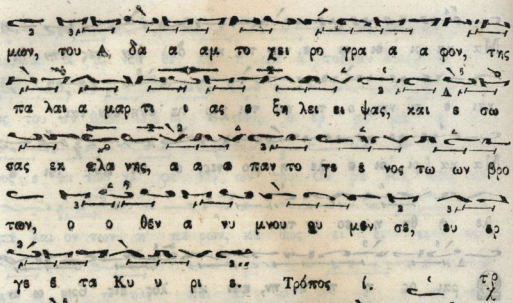 μων, του Α δα α αμ το χει ρο γρα α α φον, της
πα λαι α μαρ τι ι ας ε ξη λει ει ψας, και ε σω
σας εκ πλα νης, α α α παν το γε ε νος τω ων βρο
των, ο ο θεν α νυ μνου ου μεν σε, ευ ερ
γε ε τα Κυ υ ρι ε. Τρόπος